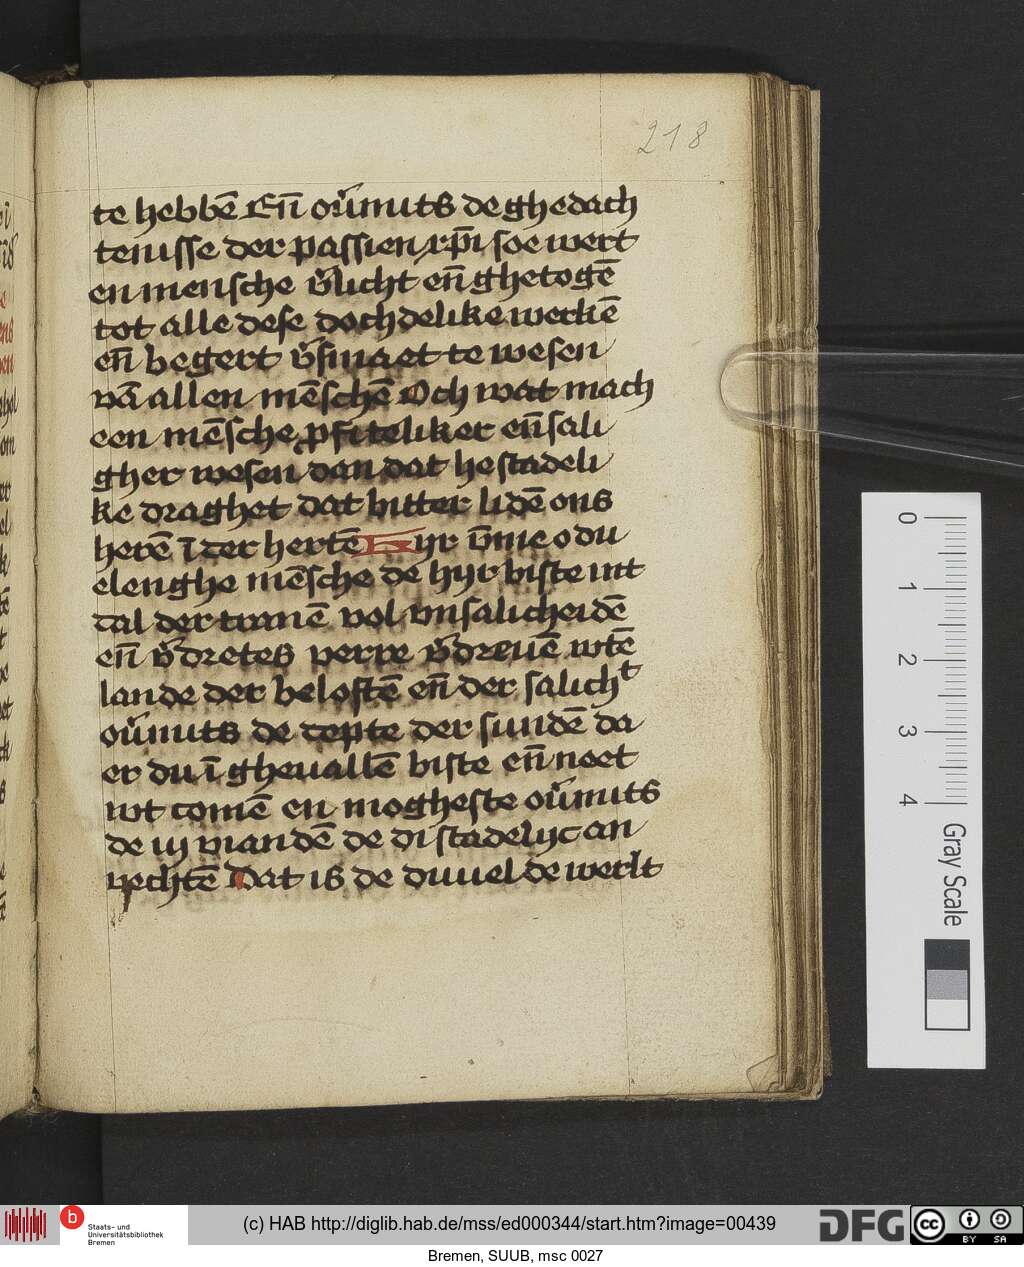 218
te hebbē Eñ ou͛mits de ghedach
tenisse der passien xp̄i soe wert
en mensche v͛licht eñ ghetogē
tot alle dese dochdelike werkē
eñ begert v͛smaet te wesen
vā allen mēschē Och wat mach
een mēsche ꝓfiteliker eñ sali
gher wesen dan dat he stadeli
ke draghet dat bitter lidē ons
herē ī der hertē Hyr v̄me o du
elenghe mēsche de hyr biste int
dal der tranē vol vnsalicheidē
eñ v͛dretes verre v͛dreuē wtē
lande der beloftē eñ der salichᵗ
ou͛mits de depte der sundē da
er du ī gheuallē biste eñ neet
wt comē en mogheste ou͛mits
de iij viandē de di stadelyc an
vechtē Dat is de duuel de werlt
0
1
2
3
4
Gray Scale
b
Staats- und
Universitätsbibliothek
Bremen
(c) HAB http://diglib.hab.de/mss/ed000344/start.htm?image=00439
DFG
cc
BY SA
Bremen, SUUB, msc 0027